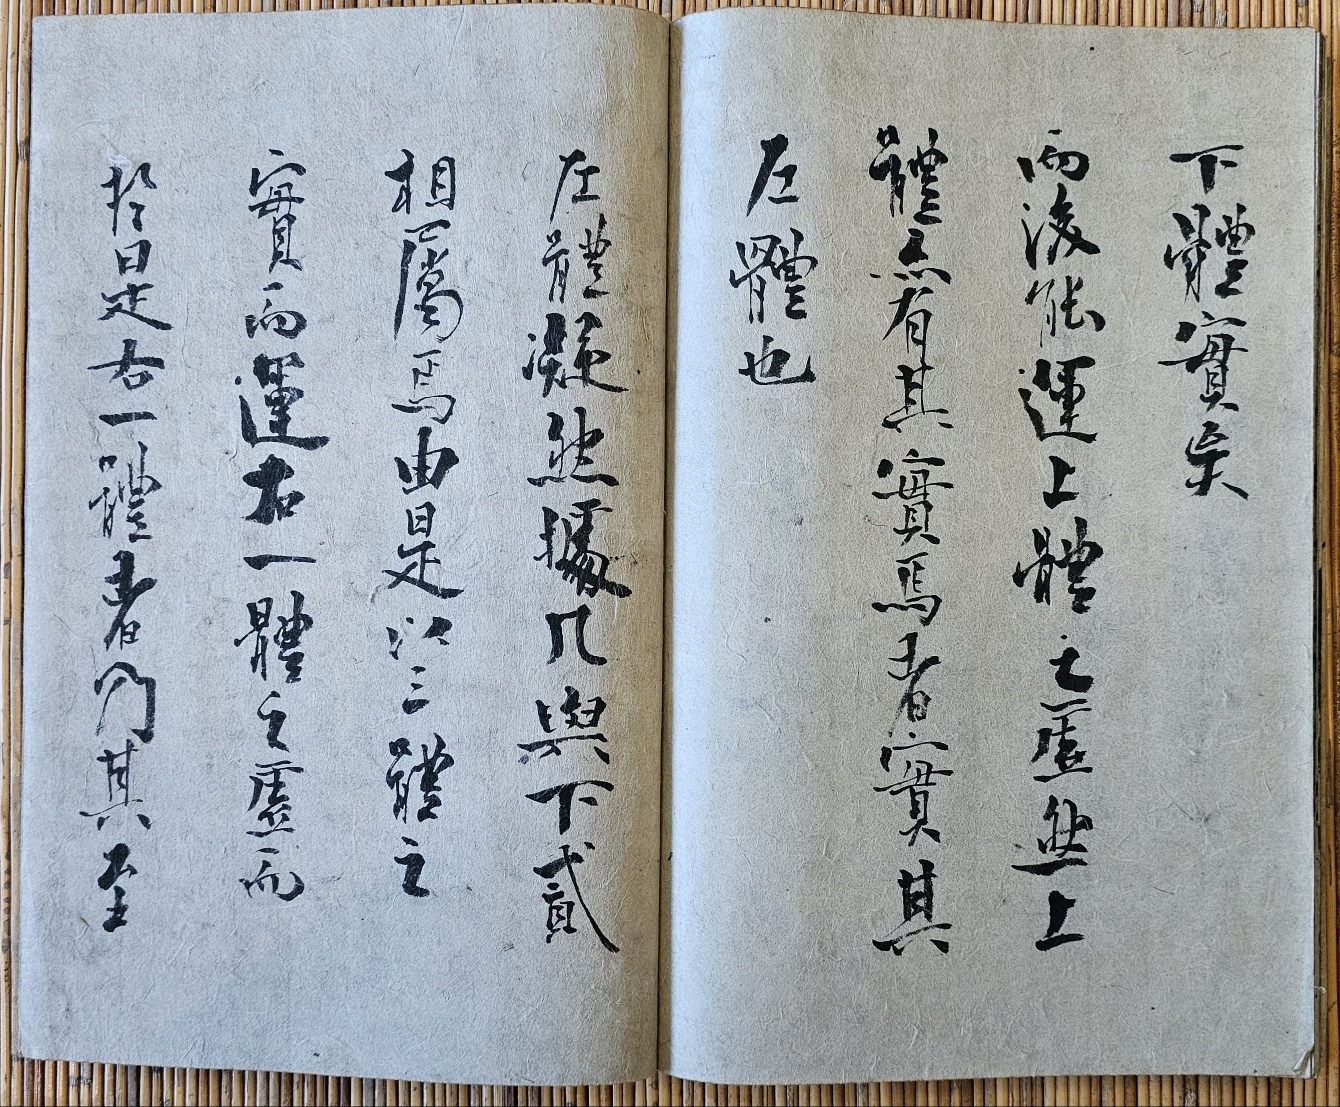 下體實矣
而後能運上體之虛然上
體亦有其實焉者實其
左體也
左體凝然據几與下貳
相屬焉由是以三體之
實而運右一體之虛而
於是右一體者乃其至